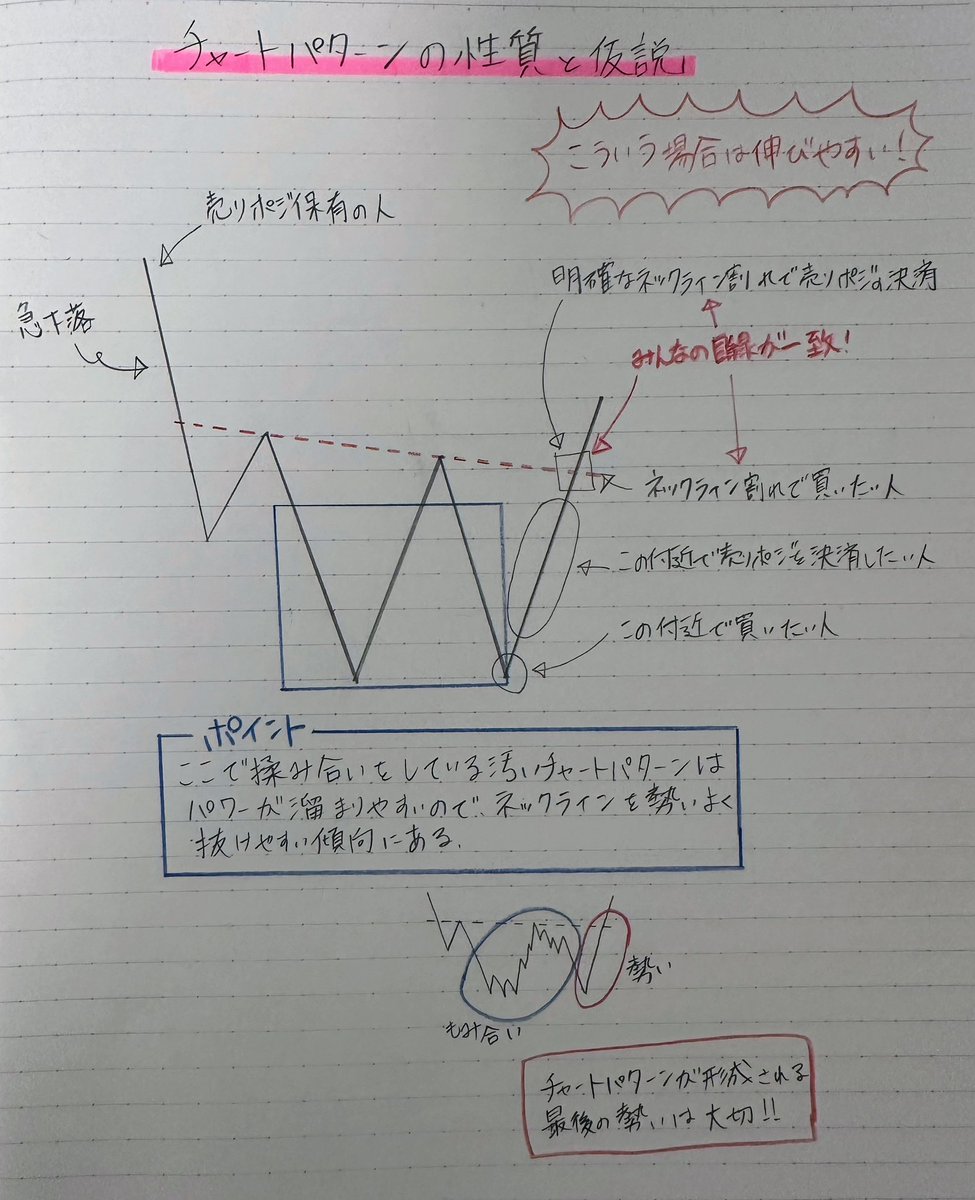 チャートパターンの性質と仮説
こういう場合は伸びやすい!
売りポジ保有の人
急下落
明確なネックライン割れで売りポジの決済
みんなの目線が一致!
ネックライン割れで買いたい人
この付近で売りポジを決済したい人
この付近で買いたい人
ポイント
ここで揉み合いをしている汚いチャートパターンは
パワーが溜まりやすいので、ネックラインを勢いよく
抜けやすい傾向にある.
勢い
もみ合い
チャートパターンが形成される
最後の勢いは大切!!